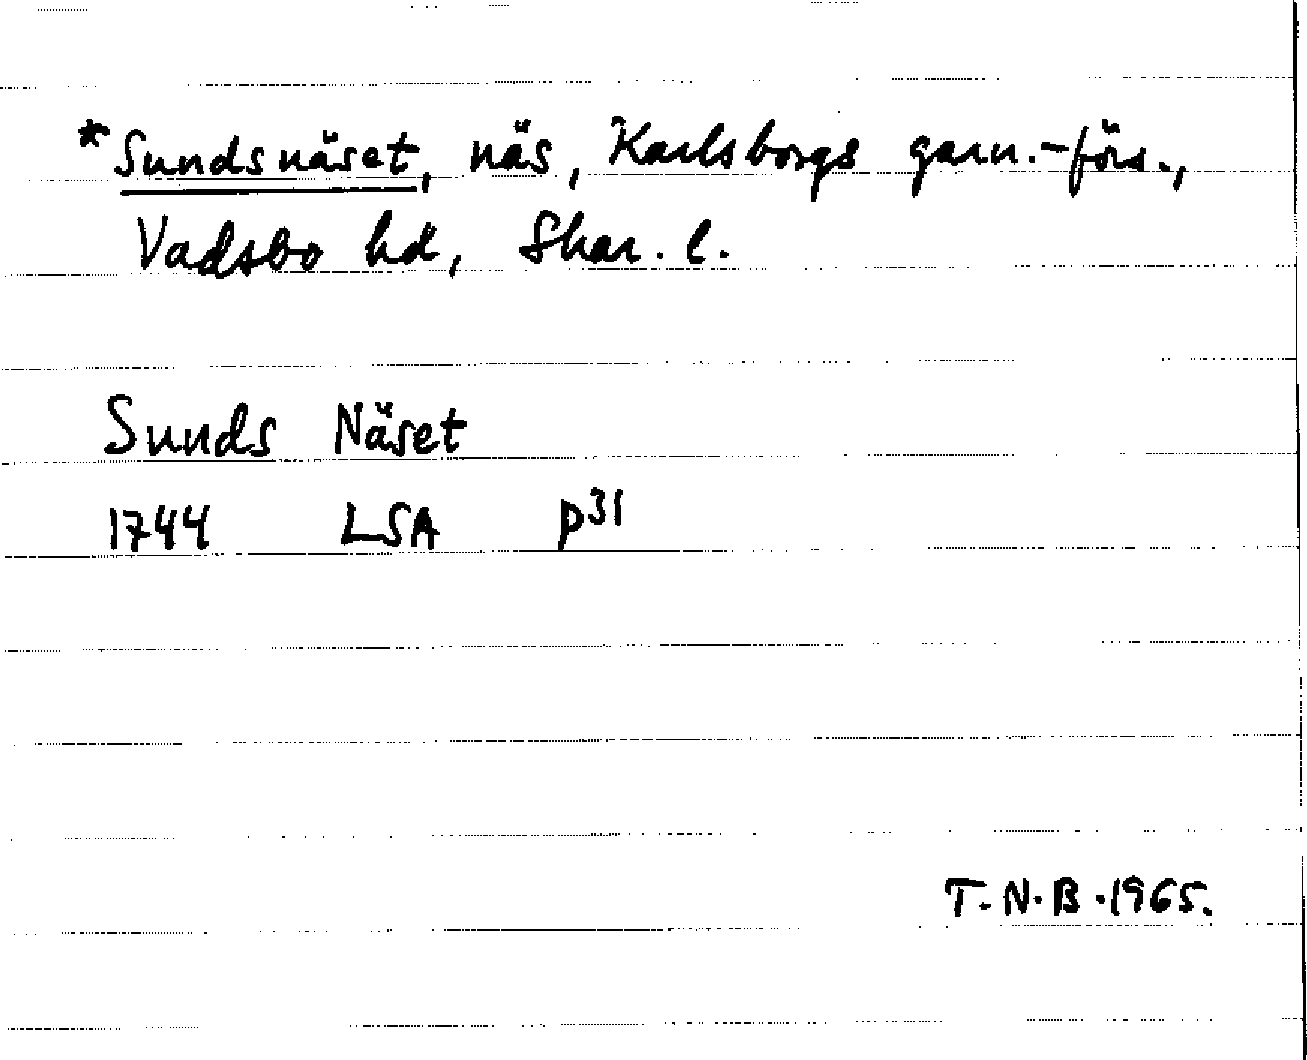 *Sundsnäset, näs, Karlsborgs garn.-förs.,
Vadsbo hd, Skar. l.
Sunds Näset
1744 LSA p31
T.N.B.1965.